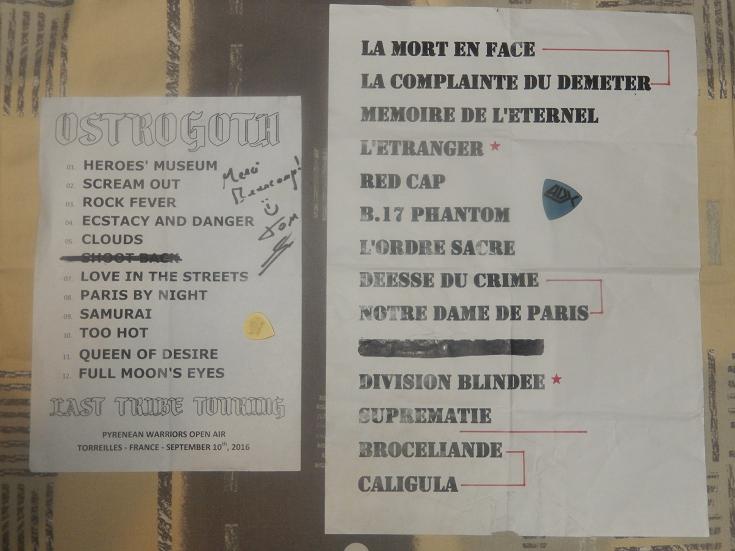 OSTROGOTH
01. HEROES' MUSEUM
02. SCREAM OUT
03. ROCK FEVER
04. ECSTACY AND DANGER
05. CLOUDS
SHOOT BACK
07. LOVE IN THE STREETS
08. PARIS BY NIGHT
09. SAMURAI
10. TOO HOT
11. QUEEN OF DESIRE
12. FULL MOON'S EYES
LAST TRIBE TOURING
PYRENEAN WARRIORS OPEN AIR
TORREILLES - FRANCE - SEPTEMBER 10th, 2016
Merci
Beaucoup!
LA MORT EN FACE
LA COMPLAINTE DU DEMETER
MEMOIRE DE L'ETERNEL
L'ETRANGER
RED CAP
B.17 PHANTOM
L'ORDRE SACRE
DEESSE DU CRIME
NOTRE DAME DE PARIS
DIVISION BLINDEE
SUPREMATIE
BROCELIANDE
CALIGULA
ADX